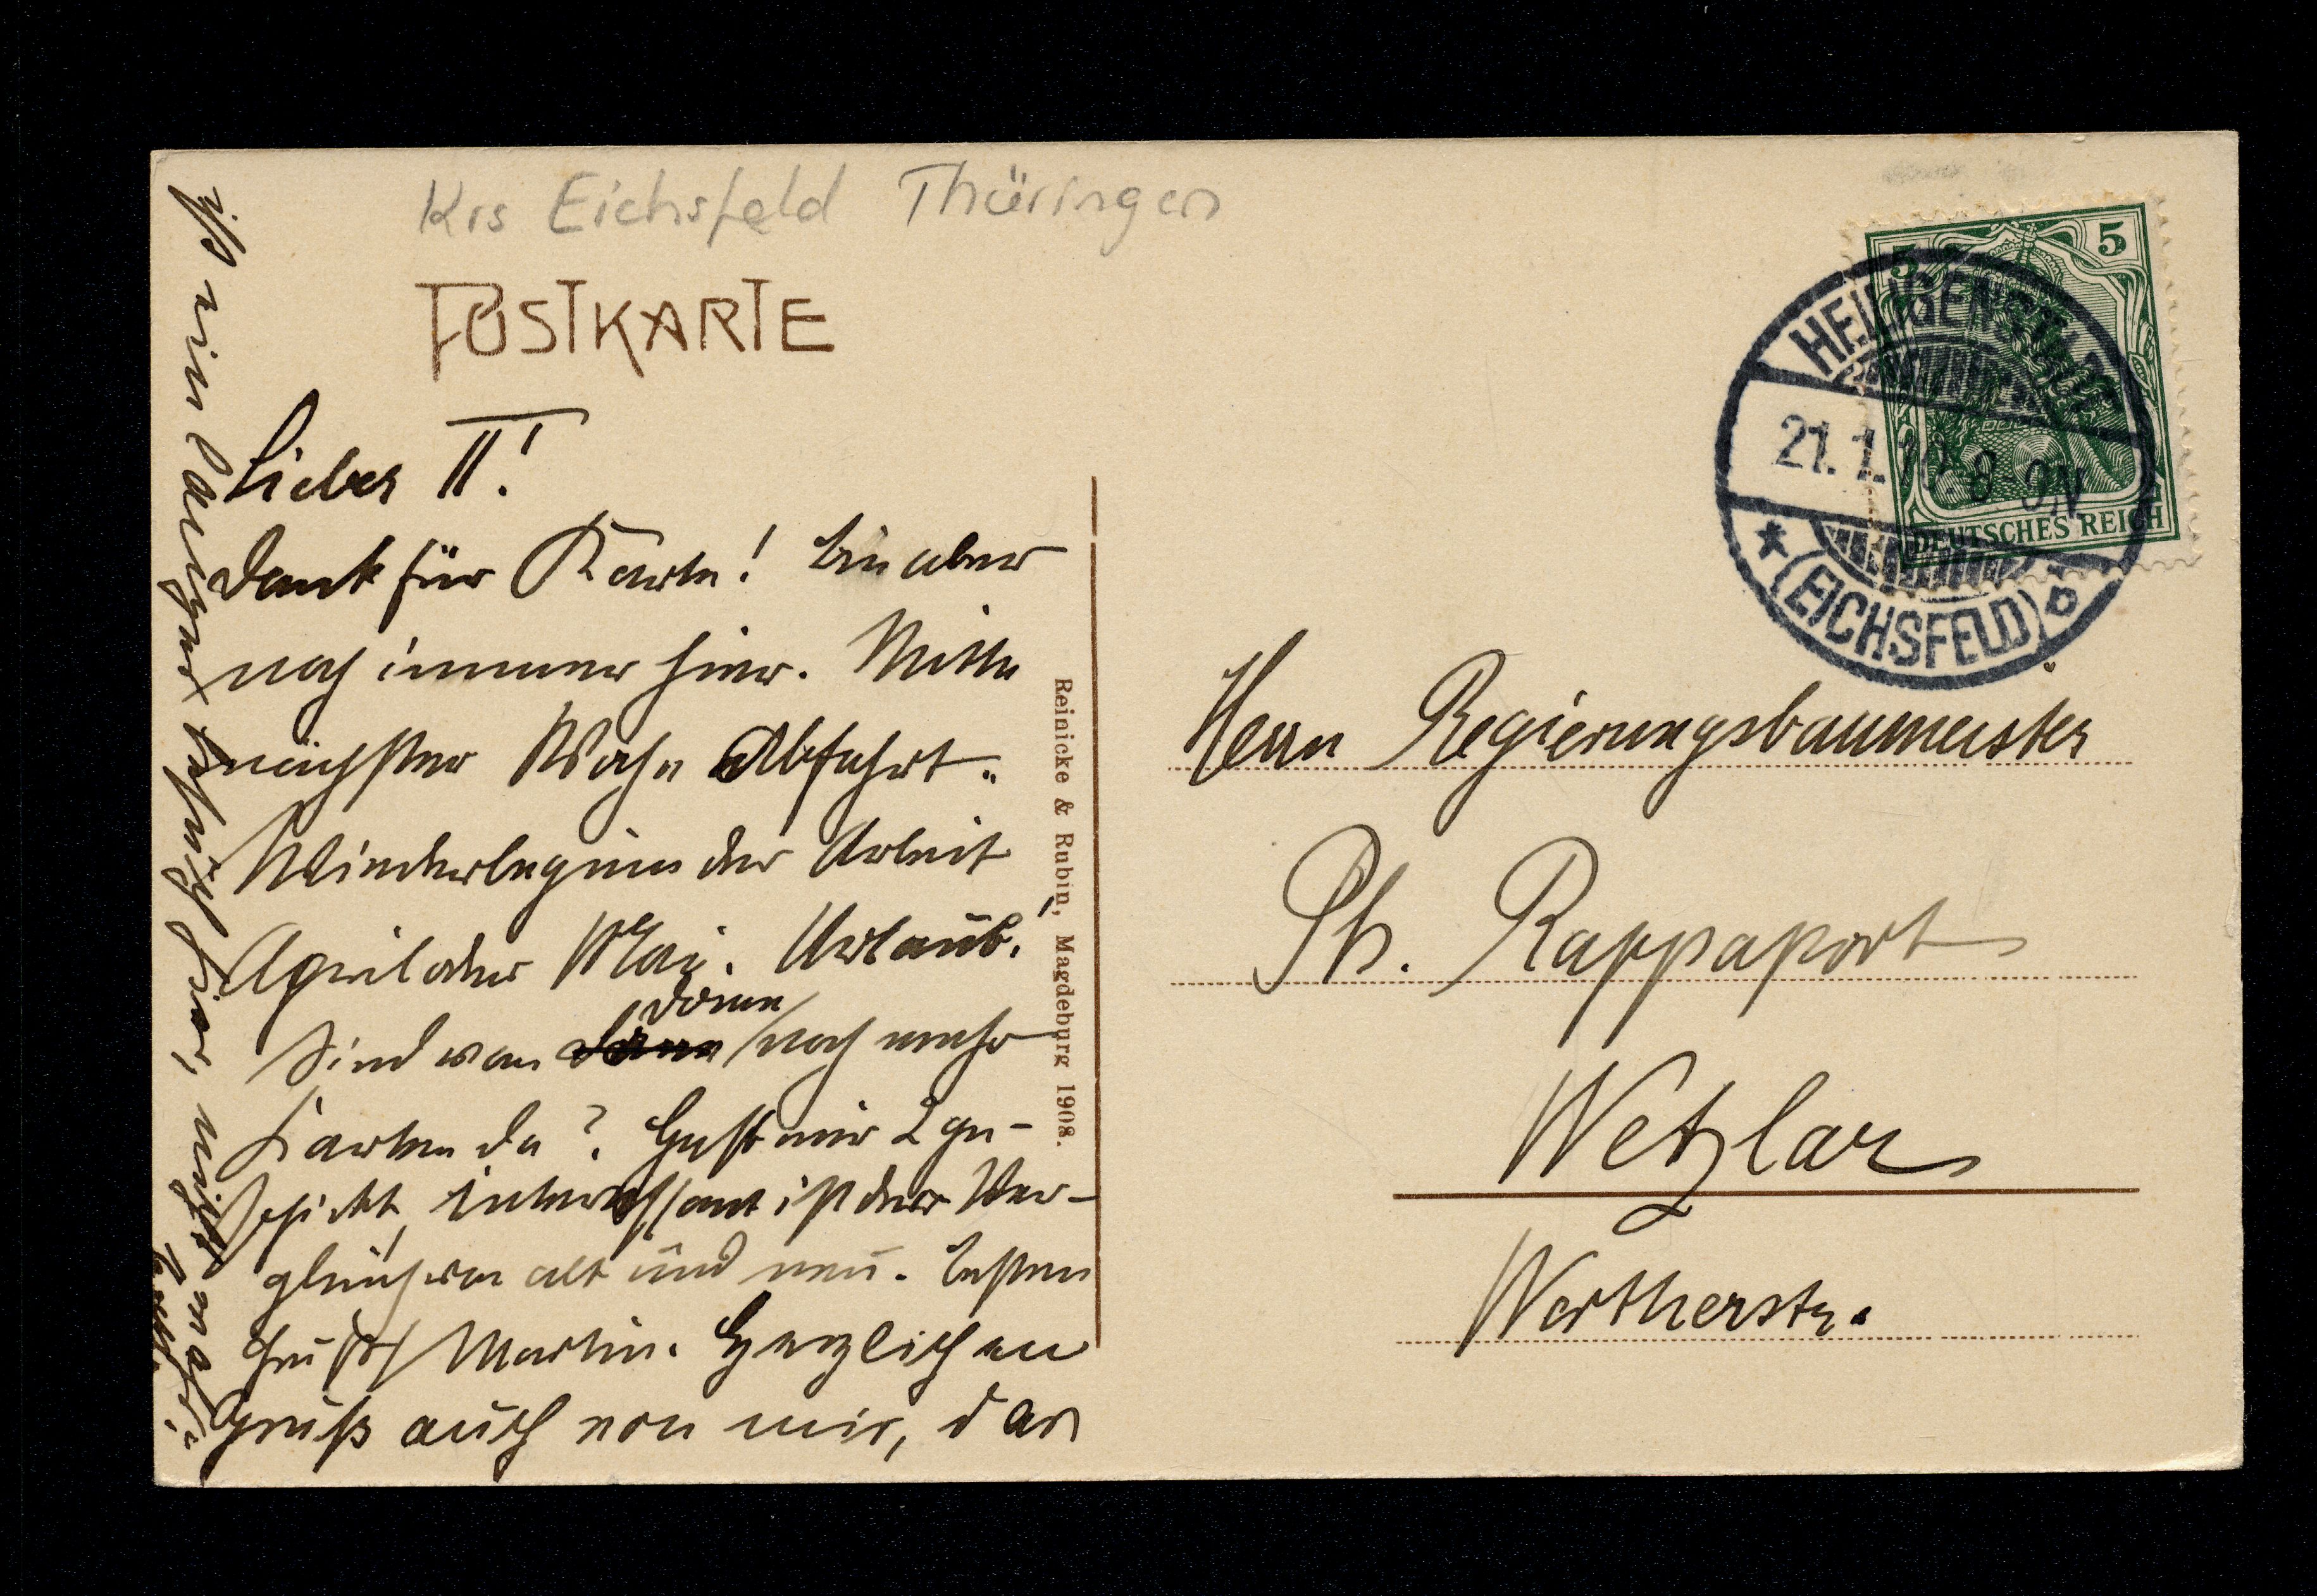 Krs Eichsfeld Thüringen
POSTKARTE
Lieber II!
Dank für Karte! Bin aber
noch immer hier. Mitte
nächster Woche Abfahrt.
Wiederbeginn der Arbeit
April oder Mai. Urlaub!
Sind von
noch mehr
Karten da? Hast mir 2 ge-
schickt, interessant ist der Ver-
gleich von alt und neu. Besten
Gruß Martin. Herzlichen
Gruß auch von mir,
ist ein
hier, nicht
Reinicke & Rubin, Magdeburg 1908.
5 5
DEUTSCHES REICH
HEILIGENSTADT
21.1. 8-9N
* (EICHSFELD) b
Herrn Regierungsbaumeister
Ph. Rappaport
Wetzlar
Wertherstr.